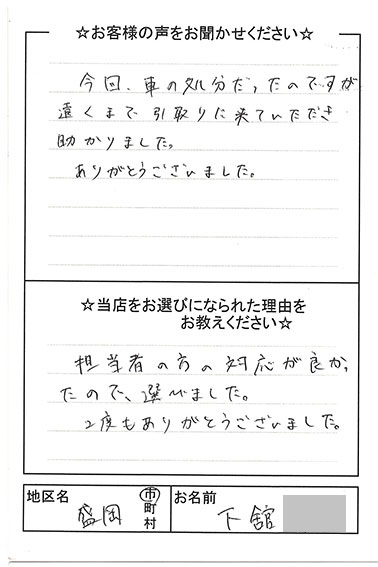 ☆お客様の声をお聞かせください☆
今回、車の処分だったのですが
遠くまで引取りに来ていただき
助かりました。
ありがとうございました。
☆当店をお選びになられた理由を
お教えください☆
担当者の方の対応が良かっ
たので、選べました。
2度もありがとうございました。
地区名 盛岡 市町村 お名前 下舘